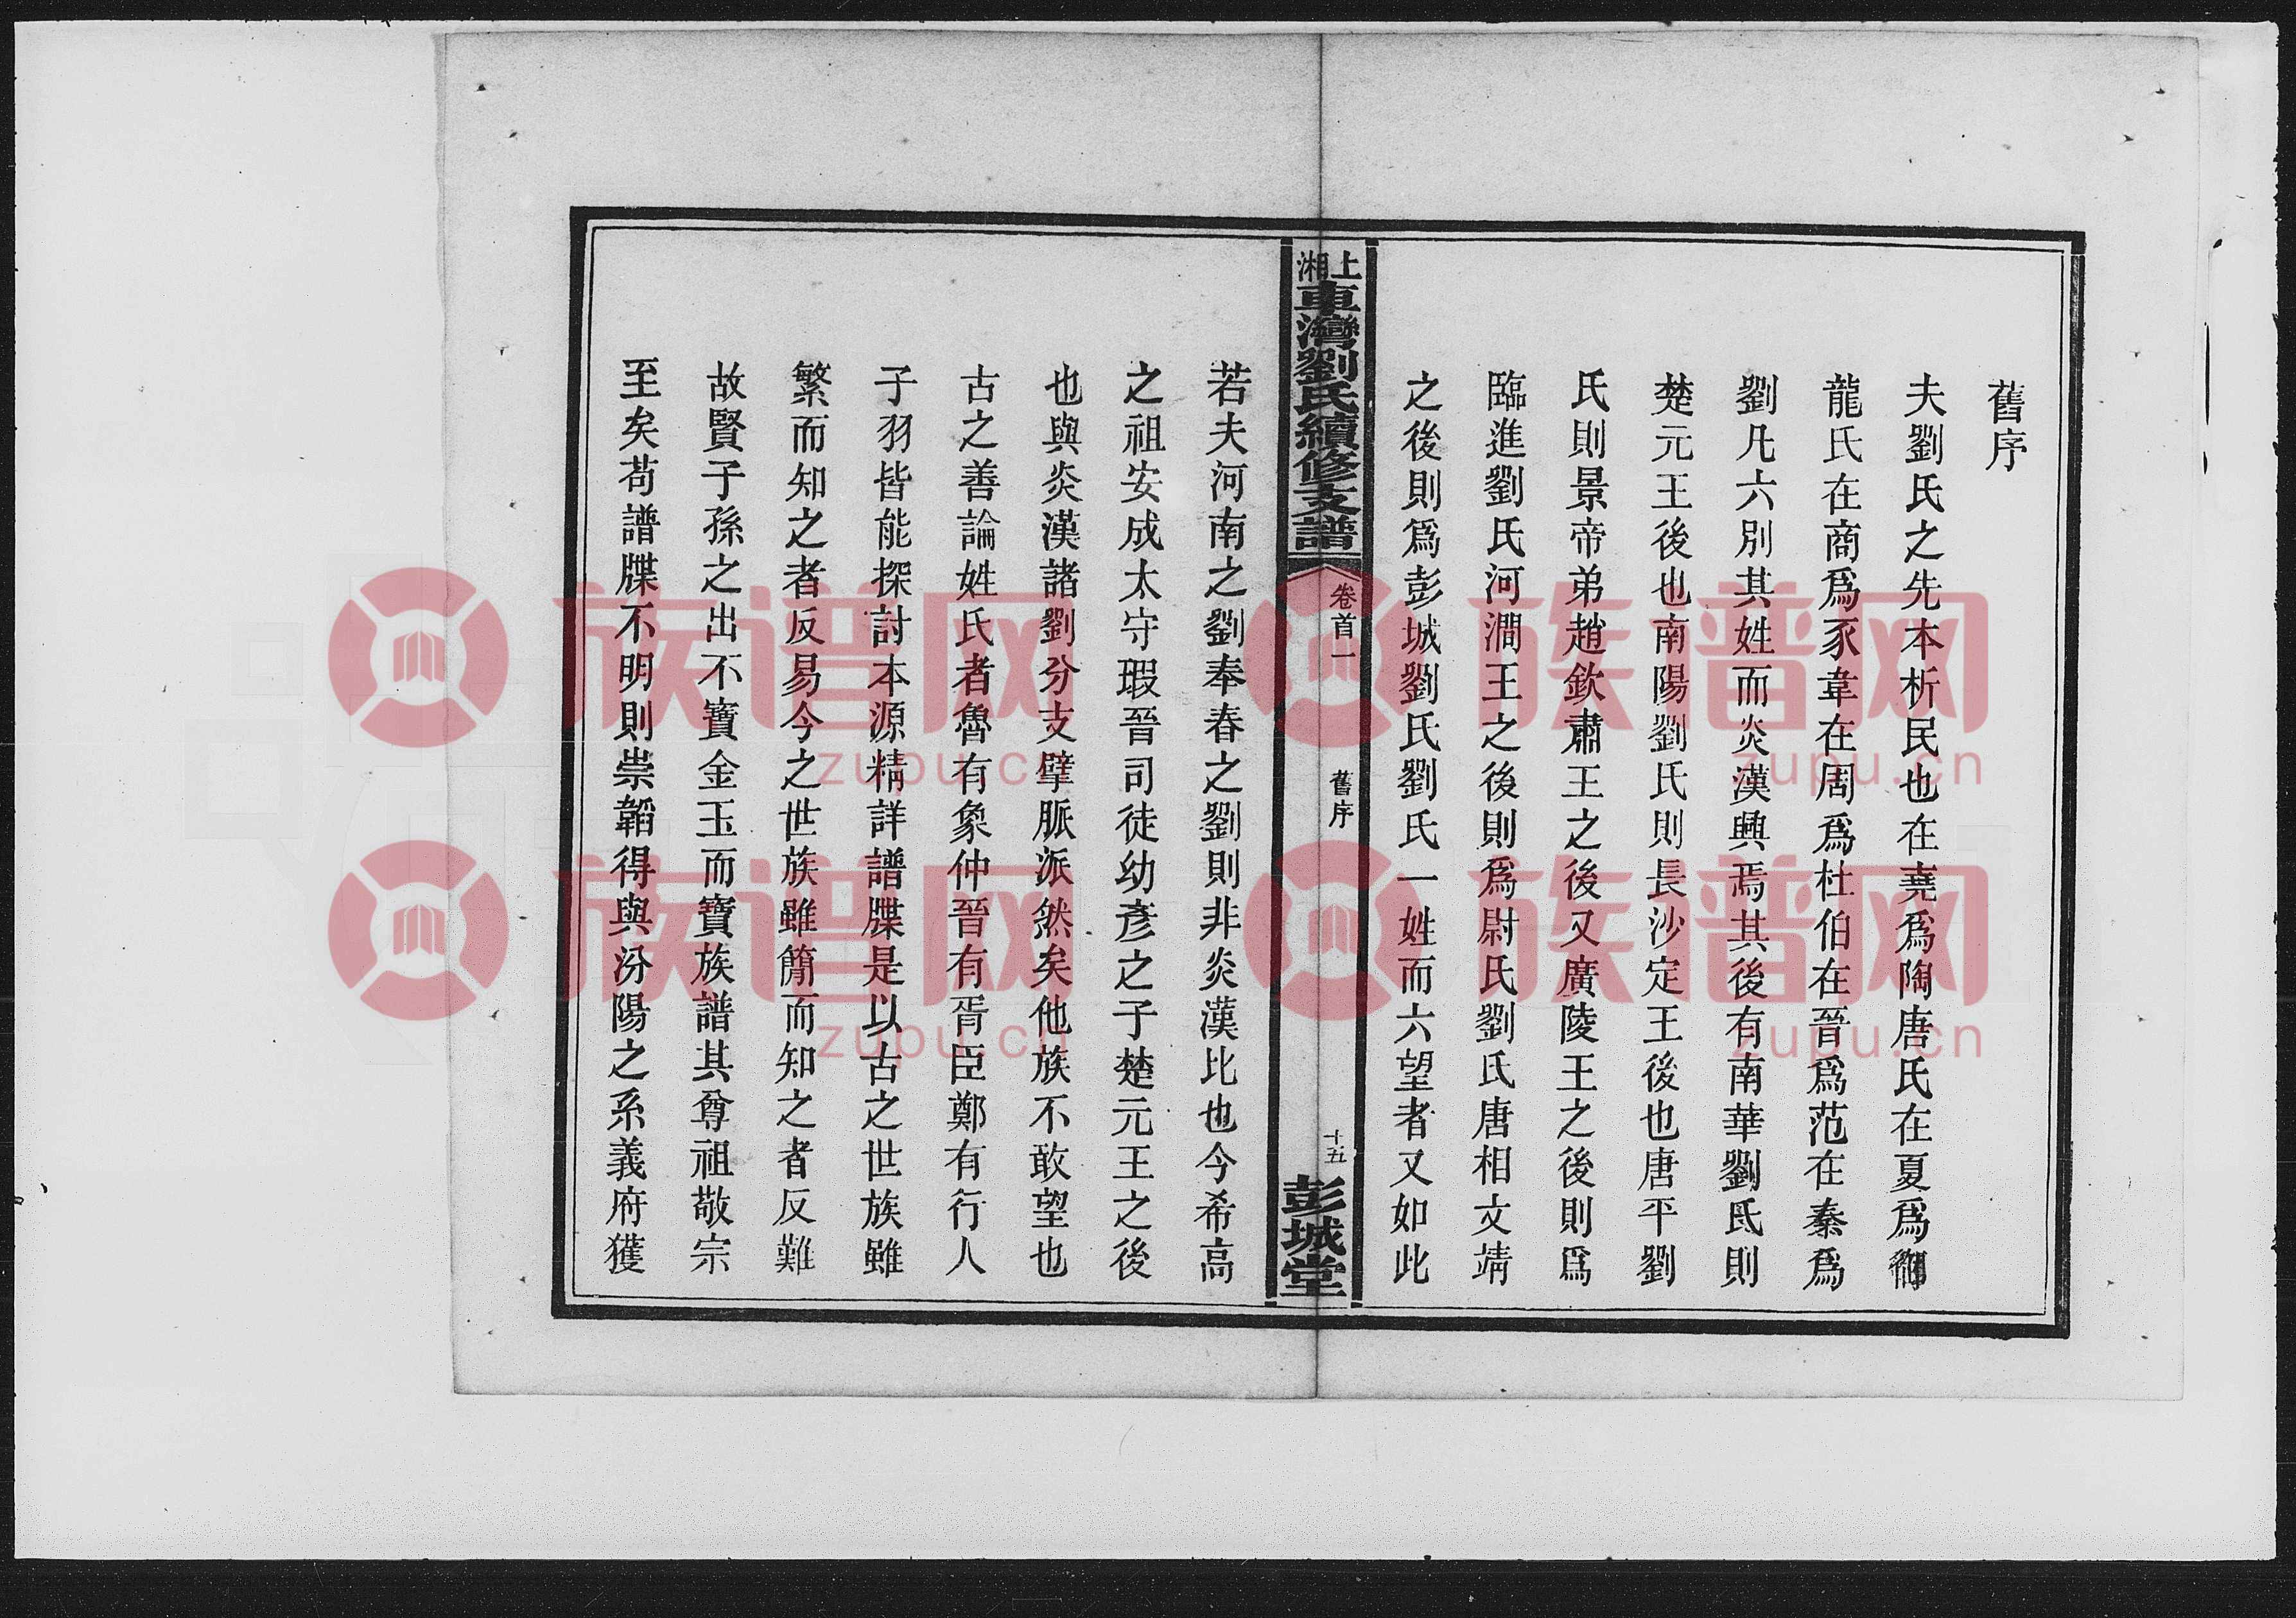 舊序
夫劉氏之先本析民也在堯爲陶唐氏在夏爲御
龍氏在商爲豕韋在周爲杜伯在晉爲范在秦爲
劉凡六別其姓而炎漢興焉其後有南華劉氏則
楚元王後也南陽劉氏則長沙定王後也唐平劉
氏則景帝弟趙欽肅王之後又廣陵王之後則爲
臨進劉氏河澗王之後則爲尉氏劉氏唐相文靖
之後則爲彭城劉氏劉氏一姓而六望者又如此
上湘車灣劉氏續修支譜
卷首一
舊序
十五
彭城堂
若夫河南之劉奉春之劉則非炎漢比也今希高
之祖安成太守瑕晉司徒幼彥之子楚元王之後
也與炎漢諸劉分支擘脈派然矣他族不敢望也
古之善論姓氏者魯有象仲晉有胥臣鄭有行人
子羽皆能探討本源精詳譜牒是以古之世族雖
繁而知之者反易今之世族雖簡而知之者反難
故賢子孫之出不寶金玉而寶族譜其尊祖敬宗
至矣苟譜牒不明則崇韜得與汾陽之系義府獲
族谱网
zupu.cn
族谱网
zupu.cn
族谱网
zupu.cn
族谱网
zupu.cn